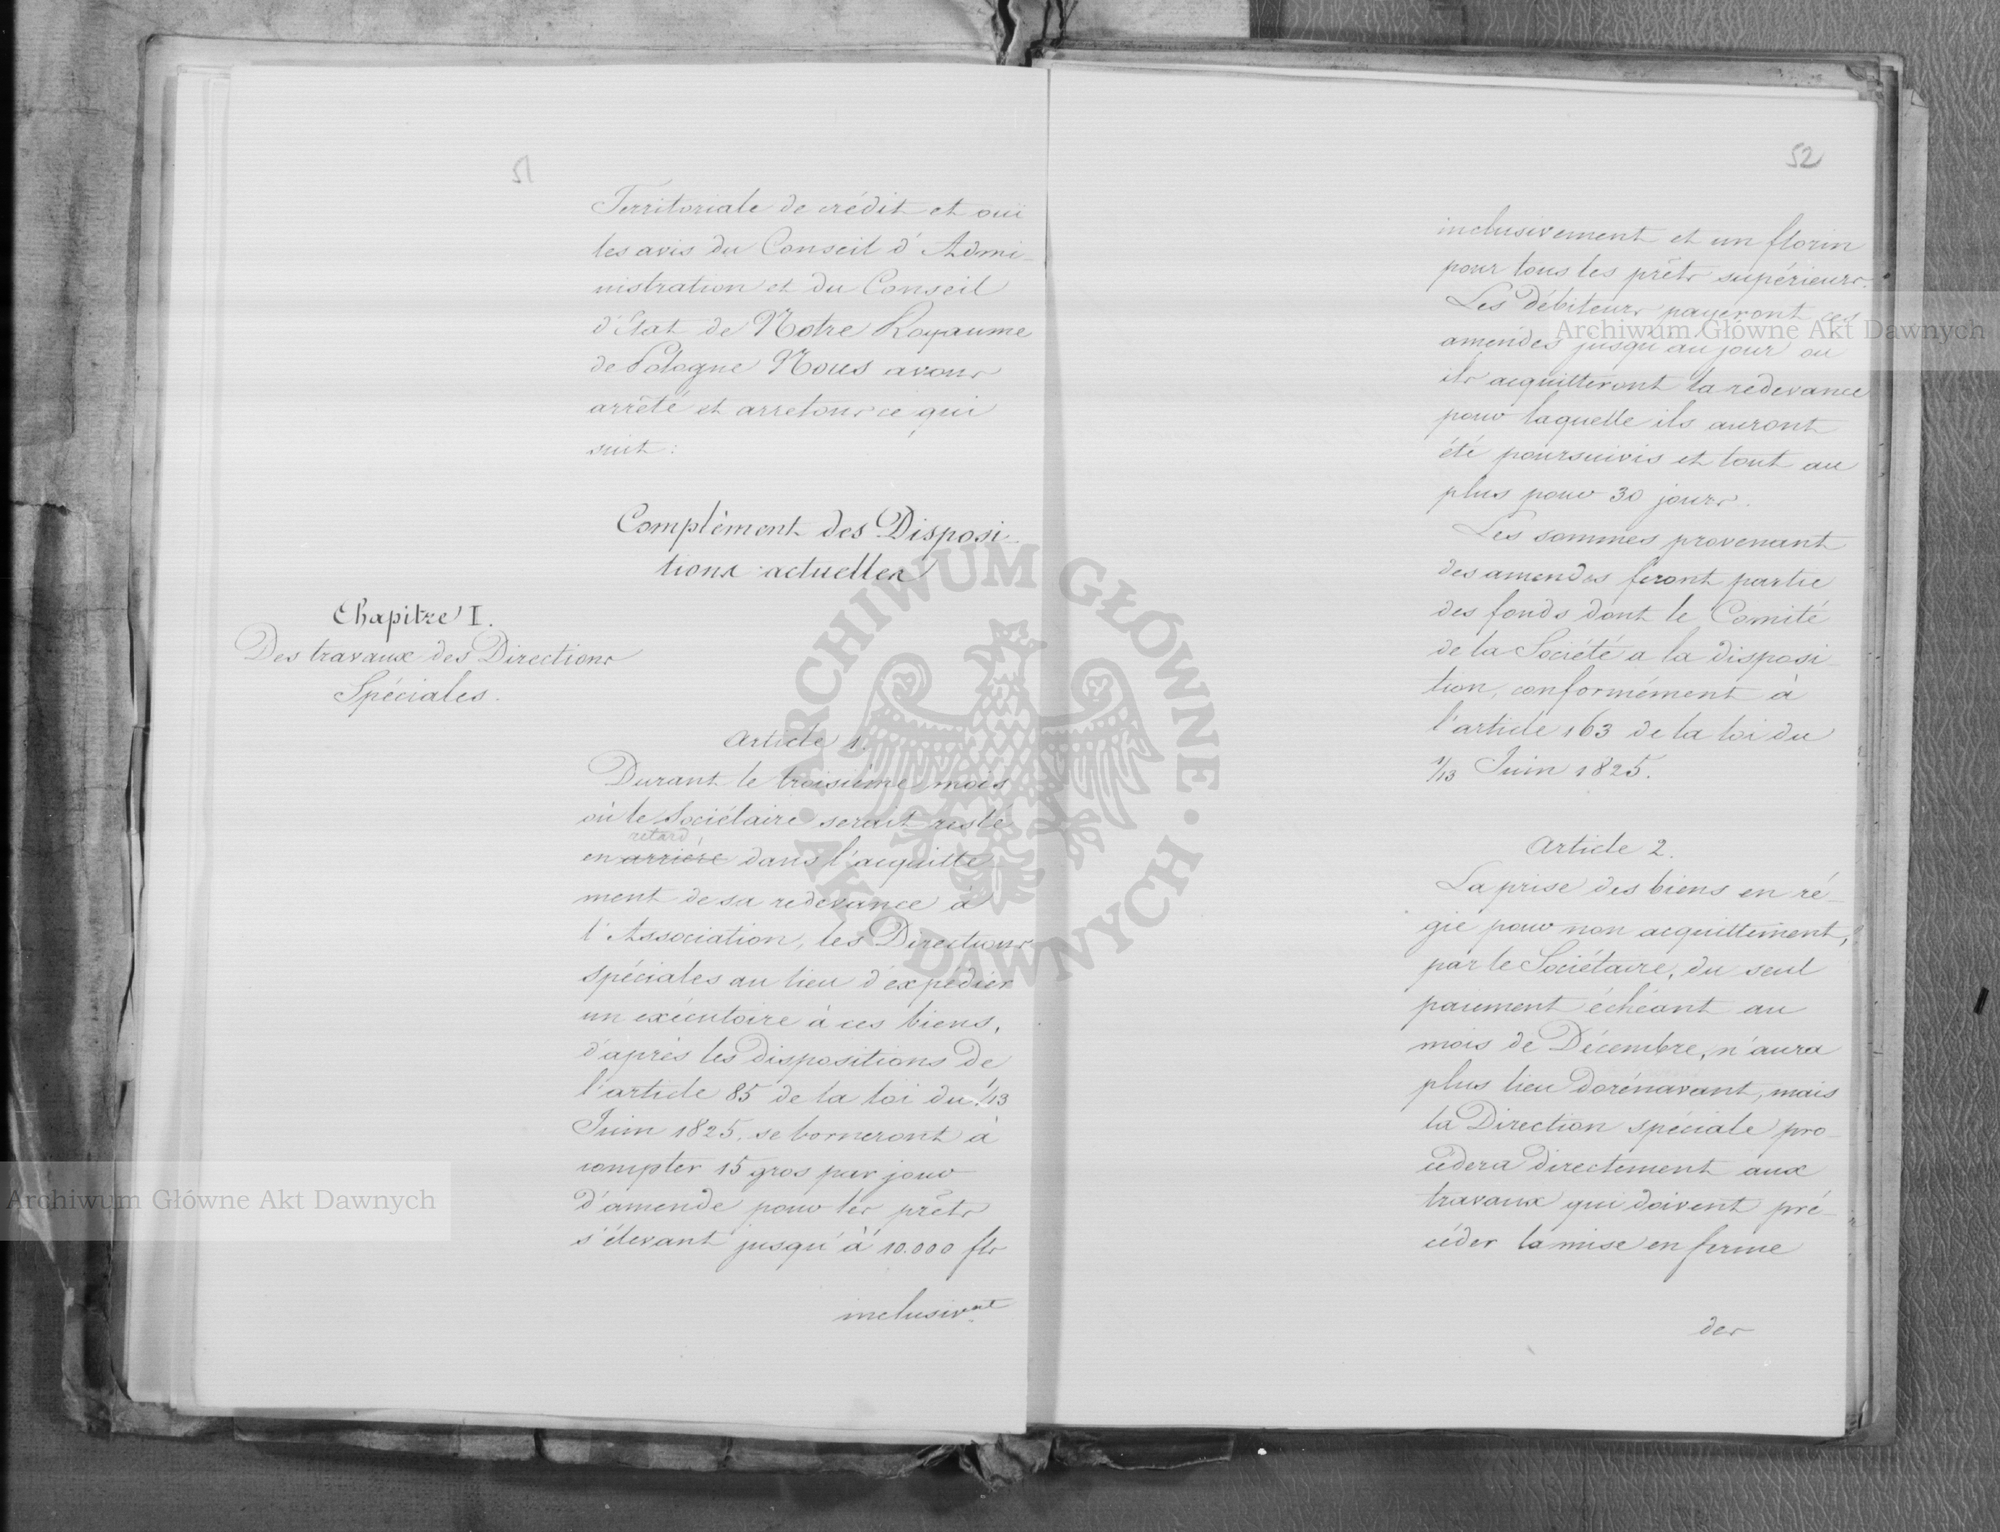 51
Territoriale de crédit et ouï
les avis du Conseil d'Admi-
nistration et du Conseil
d'État de Notre Royaume
de Pologne Nous avons
arrêté et arretons ce qui
suit:
Complèment des Disposi-
tions actuelles
Chapitre I.
Des travaux des Directions
Spéciales.
Article 1.
Durant le troisième mois
où le Sociétaire serait resté
retard
en arrière dans l'acquitte
ment de sa redevance à
l'Association, les Directions
spéciales au lieu d'expédier
un exécutoire à ces biens,
d'après les dispositions de
l'article 85 de la loi du 1/13
Juin 1825, se borneront à
compter 15 gros par jour
d'amende pour les prêts
s'élevant jusqu'à 10.000 fls
inclusivnt
52
inclusivement et un florin
pour tous les prêts supérieurs.
Les débiteurs payeront ces
amendes jusqu'au jour ou
ils acquitteront la redevance
pour laquelle ils auront
été poursuivis et tout au
plus pour 30 jours.
Les sommes provenant
des amendes feront partie
des fonds dont le Comité
de la Société a la disposi-
tion, conformément à
l'article 163 de la loi du
1/13 Juin 1825.
Article 2.
La prise des biens en ré-
gie pour non acquittement,
par le Sociétaire, du seul
paiement échéant au
mois de Décembre, n'aura
plus lieu dorénavant, mais
la Direction spéciale pro-
cédera directement aux
travaux qui doivent pré-
céder la mise en ferme
des
Archiwum Główne Akt Dawnych
Archiwum Główne Akt Dawnych
· ARCHIWUM GŁÓWNE · AKT DAWNYCH